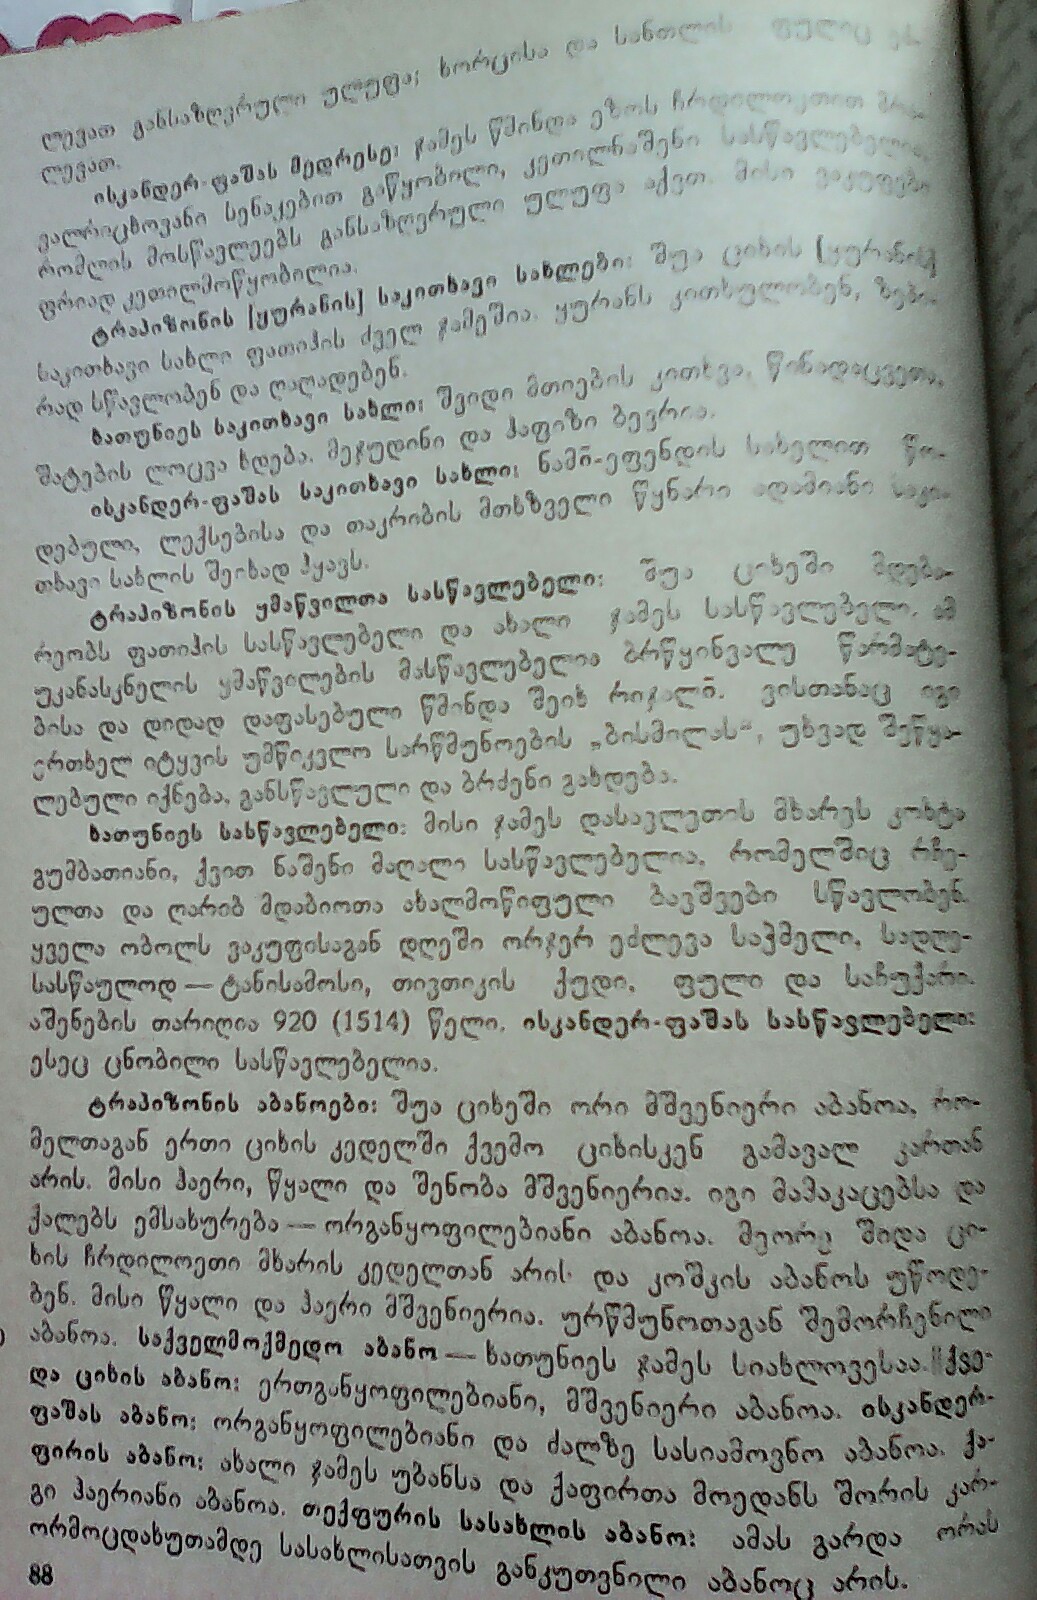 ლევათ განსაზღვრული ულუფა; ხორცისა და სანთლის ფულიც
ლევათ.
ისკანდერ-ფაშას მედრესე: ჯამეს წმინდა ეზოს ჩრდილოეთით მრა-
ვალრიცხოვანი სენაკებით გაწყობილი, კეთილნაშენი სასწავლებელია,
რომლის მოსწავლეებს განსაზღვრული ულუფა აქვთ. მისი ვაკუფები
ფრიად კეთილმოწყობილია.
ტრაპიზონის [ყურანის] საკითხავი სახლები: შუა ციხის [ყურანის]
საკითხავი სახლი ფათიჰის ძველ ჯამეშია. ყურანს კითხულობენ, ზეპი-
რად სწავლობენ და ღაღადებენ.
ხათუნიეს საკითხავი სახლი: შვიდი მთიების კითხვა, წინადაცვეთა,
შატების ლოცვა ხდება. მეჯუდინი და ჰაფიზი ბევრია.
ისკანდერ-ფაშას საკითხავი სახლი: ნამი-ეფენდის სახელით წო-
დებული, ლექსებისა და თაკრიბის მთხზველი წყნარი ადამიანი საკი-
თხავი სახლის შეიხად ჰყავს.
ტრაპიზონის ყმაწვილთა სასწავლებელი: შუა ციხეში მდება-
რეობს ფათიჰის სასწავლებელი და ახალი ჯამეს სასწავლებელი. ამ
უკანასკნელის ყმაწვილების მასწავლებელია ბრწყინვალე წარმატე-
ბისა და დიდად დაფასებული წმინდა შეიხ რიჯალი. ვისთანაც იგი
ერთხელ იტყვის უმწიკვლო სარწმუნოების „ბისმილას“, უხვად შეწყა-
ლებული იქნება, განსწავლული და ბრძენი გახდება.
ხათუნიეს სასწავლებელი: მისი ჯამეს დასავლეთის მხარეს კოხტა
გუმბათიანი, ქვით ნაშენი მაღალი სასწავლებელია, რომელშიც რჩე-
ულთა და ღარიბ მდაბიოთა ახალმოწიფული ბავშვები სწავლობენ.
ყველა ობოლს ვაკუფისაგან დღეში ორჯერ ეძლევა საჭმელი, სადღე-
სასწაულოდ — ტანისამოსი, თივთიკის ქუდი, ფული და საჩუქარი.
აშენების თარიღია 920 (1514) წელი. ისკანდერ-ფაშას სასწავლებელი:
ესეც ცნობილი სასწავლებელია.
ტრაპიზონის აბანოები: შუა ციხეში ორი მშვენიერი აბანოა, რო-
მელთაგან ერთი ციხის კედელში ქვემო ციხისკენ გამავალ კართან
არის. მისი ჰაერი, წყალი და შენობა მშვენიერია. იგი მამაკაცებსა და
ქალებს ემსახურება — ორგანყოფილებიანი აბანოა. მეორე შიდა ცი-
ხის ჩრდილოეთი მხარის კედელთან არის და კოშკის აბანოს უწოდე-
ბენ. მისი წყალი და ჰაერი მშვენიერია. ურწმუნოთაგან შემორჩენილი
აბანოა. საქველმოქმედო აბანო — ხათუნიეს ჯამეს სიახლოვესაა. ქვე-
და ციხის აბანო: ერთგანყოფილებიანი, მშვენიერი აბანოა. ისკანდერ-
ფაშას აბანო: ორგანყოფილებიანი და ძალზე სასიამოვნო აბანოა. ქა-
ფირის აბანო: ახალი ჯამეს უბანსა და ქაფირთა მოედანს შორის კარ-
გი ჰაერიანი აბანოა. თექფურის სასახლის აბანო: ამას გარდა ორას
ორმოცდახუთამდე სასახლისათვის განკუთვნილი აბანოც არის.
88